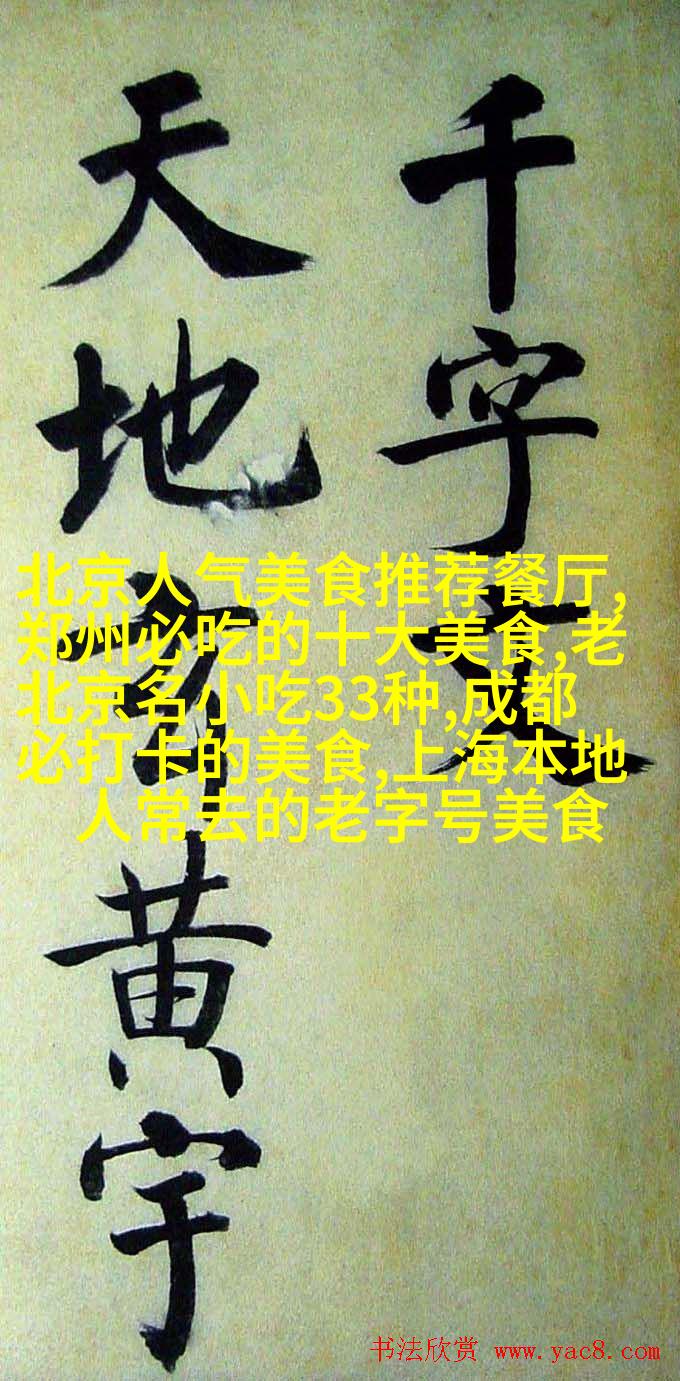 千字文
天地玄黄宇
北京人气美食推荐餐厅,
郑州必吃的十大美食,老
北京名小吃33种,成都
必打卡的美食,上海本地
人常去的老字号美食
书法欣赏 www.yac8.com